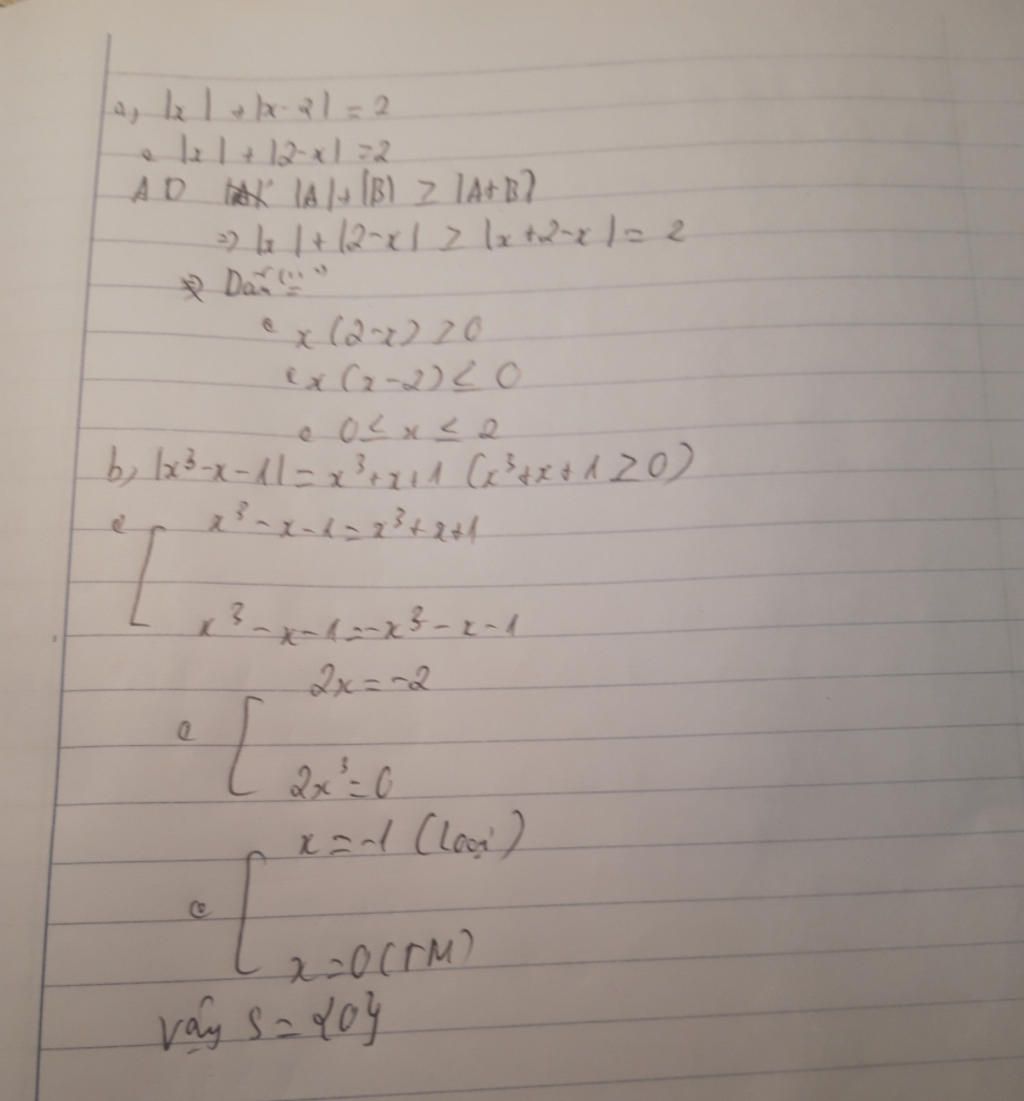 a, |x| + |x-2| = 2
|x| + |2-x| = 2
AD |A|+|B| ≥ |A+B|
=> |x| + |2-x| ≥ |x+2-x| = 2
Dấu "="
x(2-x) ≥ 0
x(x-2) ≤ 0
0 ≤ x ≤ 2
b, |x³-x-1| = x³+x+1 (x³+x+1 ≥ 0)
x³-x-1 = x³+x+1
x³-x-1 = -x³-x-1
2x = -2
2x³ = 0
x = -1 (loại)
x = 0 (TM)
Vậy S = {0}